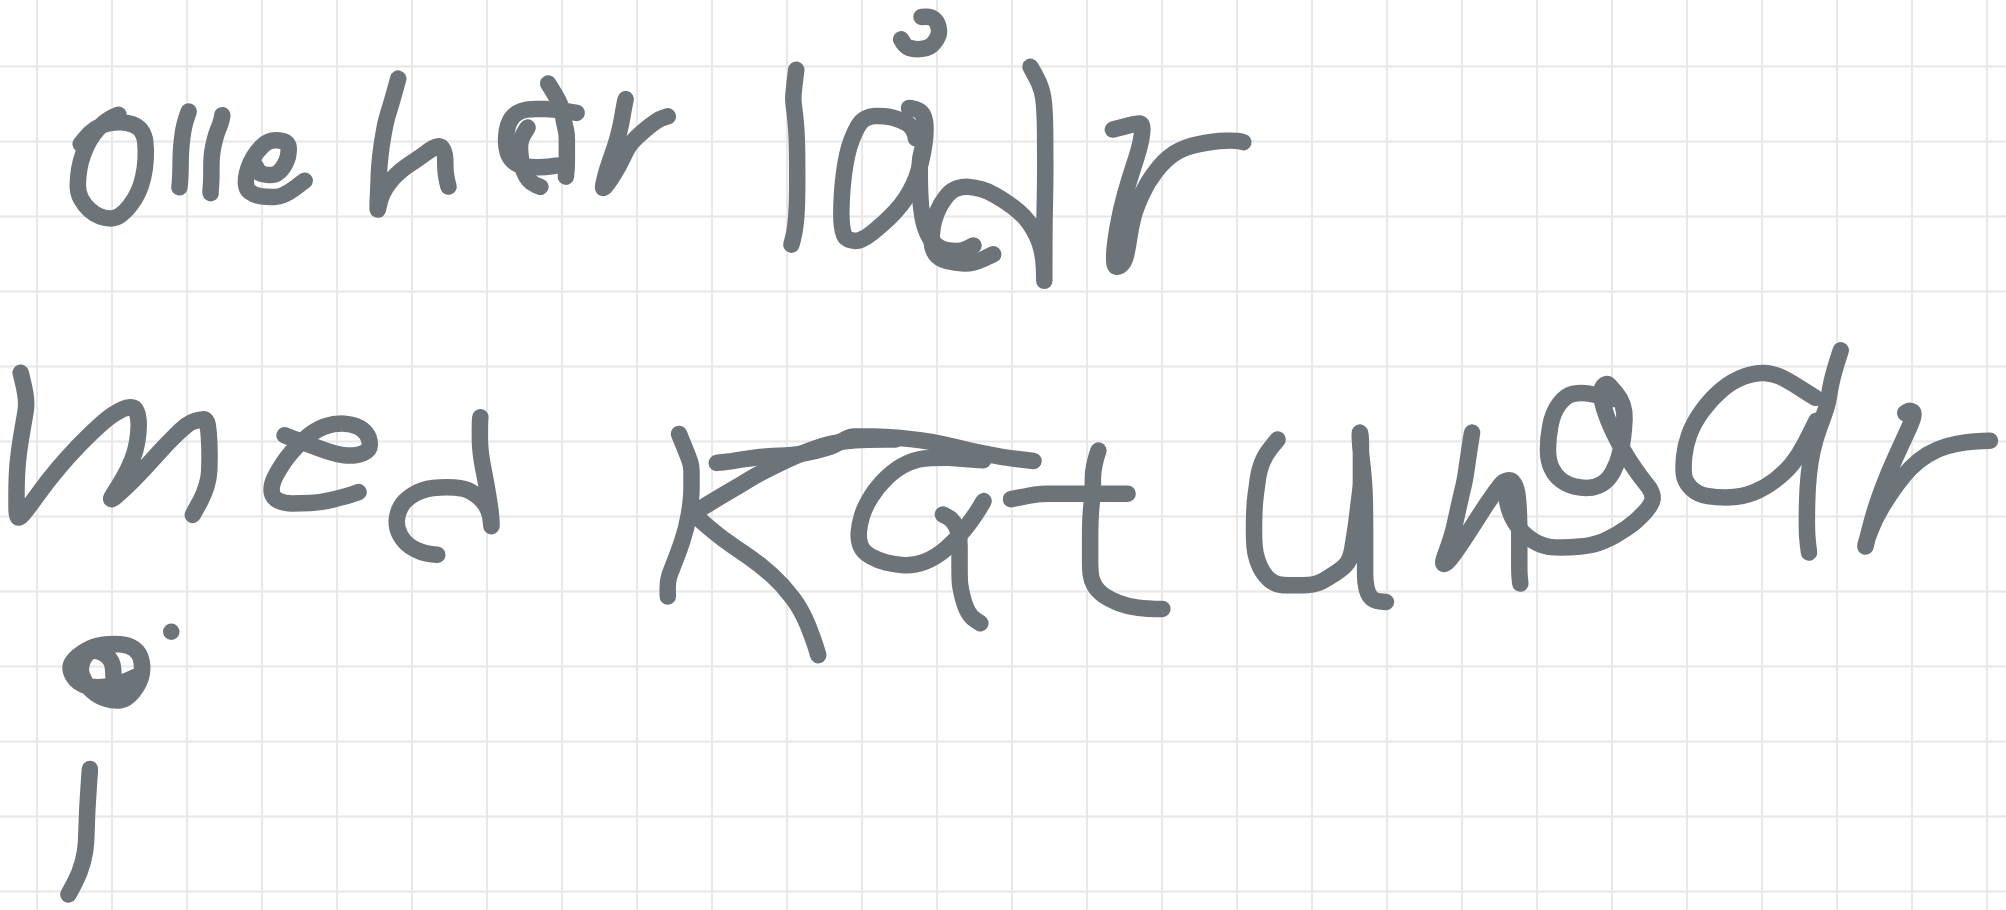 olle har lådr
med Katungar
i